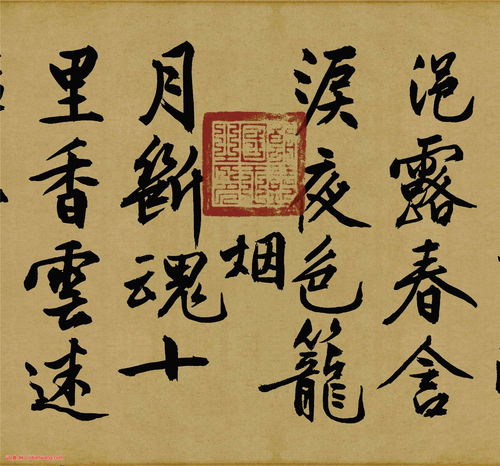 浥露春含
淚夜色籠
烟
月斷魂十
里香雲迷